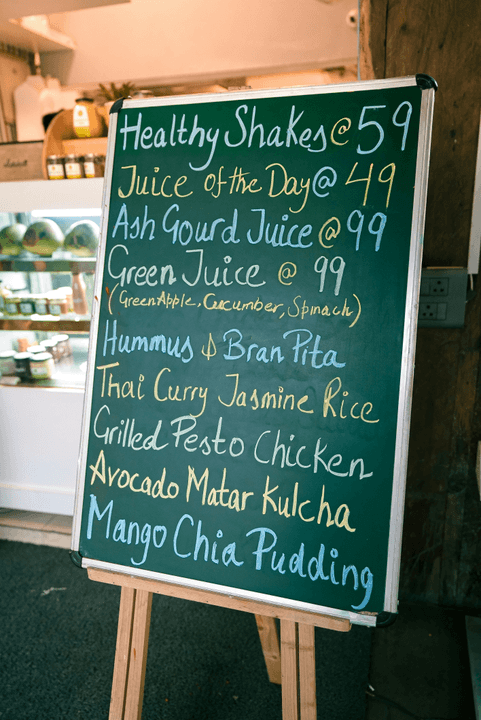 Healthy Shakes @ 59
Juice of the Day @ 49
Ash Gourd Juice @ 99
Green Juice @ 99
(Green Apple, Cucumber, Spinach)
Hummus & Bran Pita
Thai Curry Jasmine Rice
Grilled Pesto Chicken
Avocado Matar Kulcha
Mango Chia Pudding